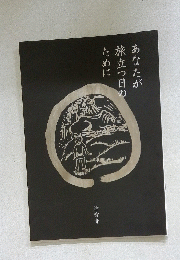 あなたが
旅立つ日の
ために